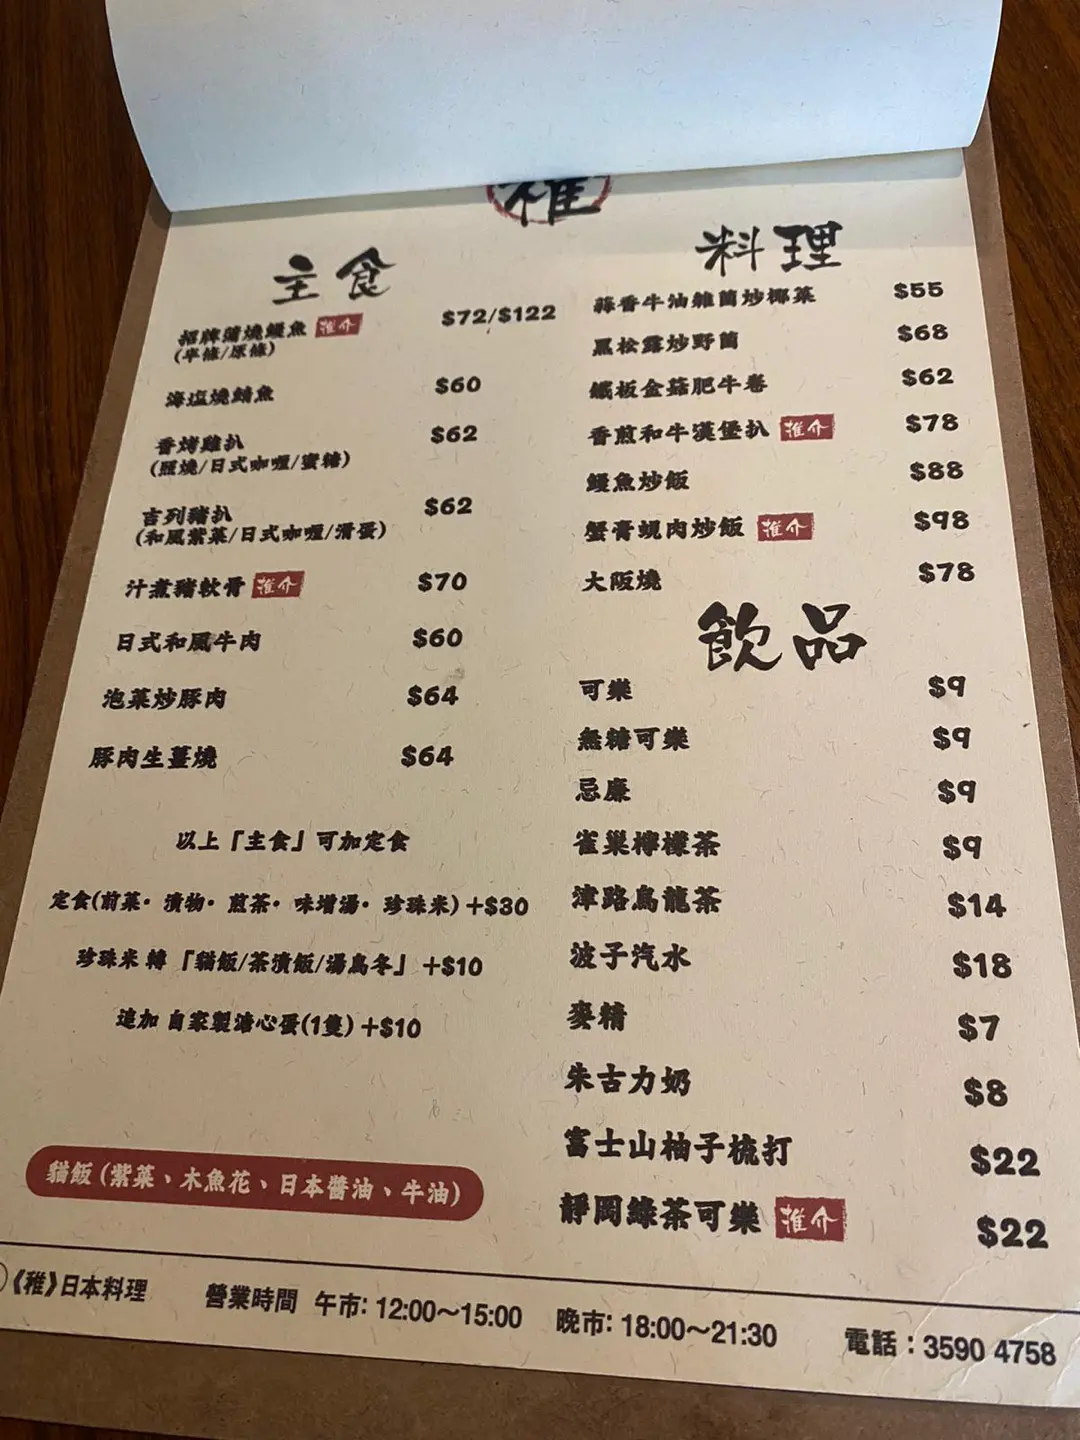 稚
主食
招牌蒲燒鰻魚 推介 $72/$122
(半條/原條)
海塩燒鯖魚 $60
香烤雞扒 $62
(照燒/日式咖喱/蜜糖)
吉列豬扒 $62
(和風紫菜/日式咖喱/滑蛋)
汁煮豬軟骨 推介 $70
日式和風牛肉 $60
泡菜炒豚肉 $64
豚肉生薑燒 $64
以上「主食」可加定食
定食(前菜・漬物・煎茶・味增湯・珍珠米)+$30
珍珠米 轉 「貓飯/茶漬飯/湯烏冬」 +$10
追加 自家製溏心蛋(1隻)+$10
貓飯 (紫菜、木魚花、日本醬油、牛油)
料理
蒜香牛油雜菌炒椰菜 $55
黑松露炒野菌 $68
鐵板金菇肥牛卷 $62
香煎和牛漢堡扒 推介 $78
鰻魚炒飯 $88
蟹膏蜆肉炒飯 推介 $98
大阪燒 $78
飲品
可樂 $9
無糖可樂 $9
忌廉 $9
雀巢檸檬茶 $9
津路烏龍茶 $14
波子汽水 $18
麥精 $7
朱古力奶 $8
富士山柚子梳打 $22
靜岡綠茶可樂 推介 $22
《稚》日本料理 營業時間 午市: 12:00～15:00 晚市: 18:00～21:30 電話：3590 4758